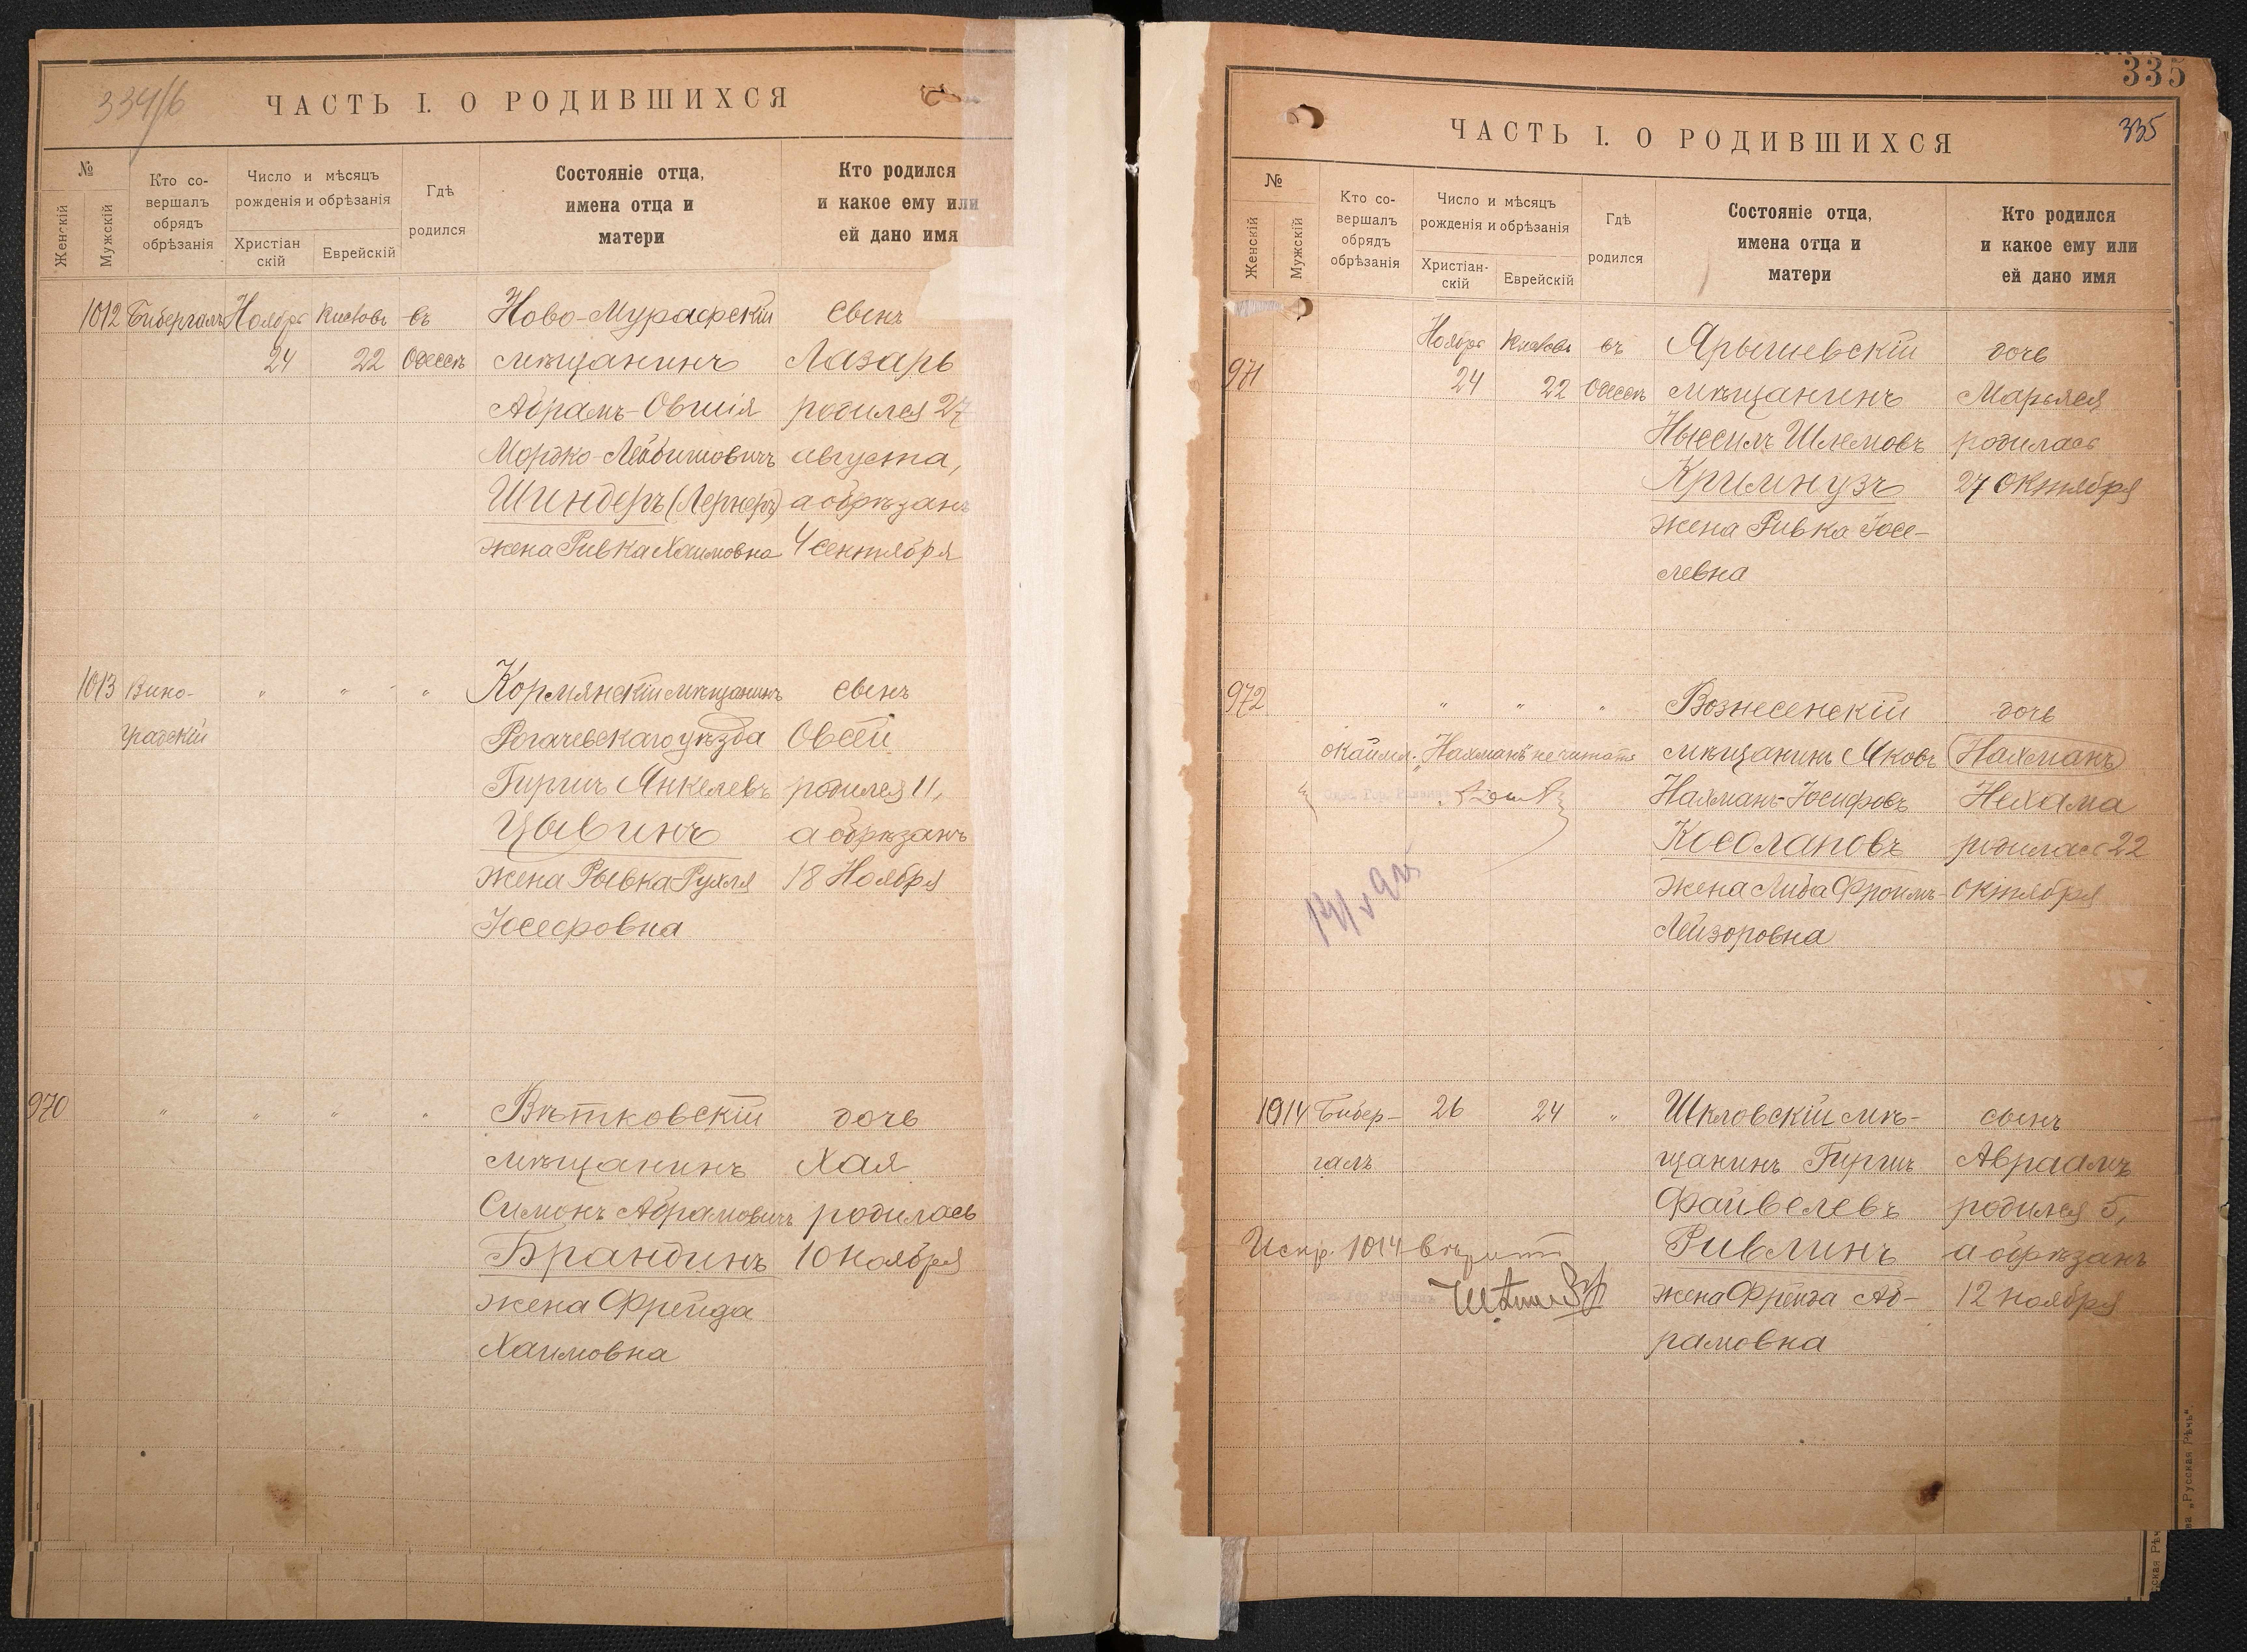 334/б
ЧАСТЬ I. О РОДИВШИХСЯ
№
Женскій
Мужскій
Кто со-
вершалъ
обрядъ
обрѣзанія
Число и мѣсяцъ
рожденія и обрѣзанія
Христіан
скій
Еврейскій
Гдѣ
родился
Состояніе отца,
имена отца и
матери
Кто родился
и какое ему или
ей дано имя
1012 Бибергалъ Ноября Кислевъ въ Ново-Мурафскій сынъ
24 22 Одессѣ мѣщанинъ Лазарь
Абрамъ-Овшія родился 27
Мордко-Лейбишовичъ августа,
Шиндеръ (Лернеръ) а обрѣзанъ
жена Ривка Хаимовна 4 сентября
1013 Вино- " " " Кормянскій мѣщанинъ сынъ
градскій Рогачевскаго уѣзда Овсей
Гиршъ Янкелевъ родился 11,
Цывинъ а обрѣзанъ
жена Рывка Рухля 18 Ноября
Іосефовна
970 " " " " Вѣтковскій дочь
мѣщанинъ Хая
Симонъ Абрамовичъ родилась
Брандинъ 10 Ноября
жена Фрейда
Хаимовна
335
335
ЧАСТЬ I. О РОДИВШИХСЯ
№
Женскій
Мужскій
Кто со-
вершалъ
обрядъ
обрѣзанія
Число и мѣсяцъ
рожденія и обрѣзанія
Христіан-
скій
Еврейскій
Гдѣ
родился
Состояніе отца,
имена отца и
матери
Кто родился
и какое ему или
ей дано имя
Ноября Кислевъ въ Ярышевскій дочь
971 24 22 Одессѣ мѣщанинъ Марьяся
Ныссилъ Шлемовъ родилась
Кримнузъ 27 Октября
жена Ривка Іосе-
левна
972 " " " Вознесенскій дочь
окаймл. "Нахманъ" не читать мѣщанинъ Яковъ Нахманъ
Нахманъ-Іосифовъ Нехама
Косолаповъ родилась 22
жена Либа Фроимъ- октября
Лейзоровна
1014 Бибер- 26 24 " Шкловскій мѣ- сынъ
галъ щанинъ Гиршъ Авраамъ
Файвелевъ родился 5,
Испр. 1014 вѣрить Ривлинъ а обрѣзанъ
жена Фрейда Аб- 12 ноября
рамовна
ва „Русская Рѣчь"
сская Рѣч